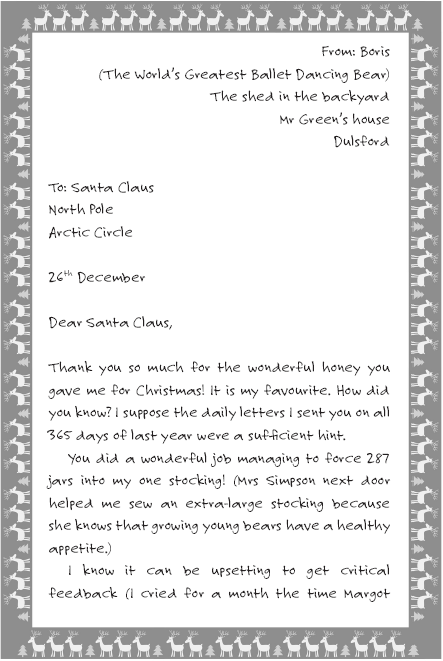 From: Boris
(The World's Greatest Ballet Dancing Bear)
The shed in the backyard
Mr Green's house
Dulsford
To: Santa Claus
North Pole
Arctic Circle
26th December
Dear Santa Claus,
Thank you so much for the wonderful honey you
gave me for Christmas! It is my favourite. How did
you know? I suppose the daily letters I sent you on all
365 days of last year were a sufficient hint.
You did a wonderful job managing to force 287
jars into my one stocking! (Mrs Simpson next door
helped me sew an extra-large stocking because
she knows that growing young bears have a healthy
appetite.)
I know it can be upsetting to get critical
feedback (I cried for a month the time Margot